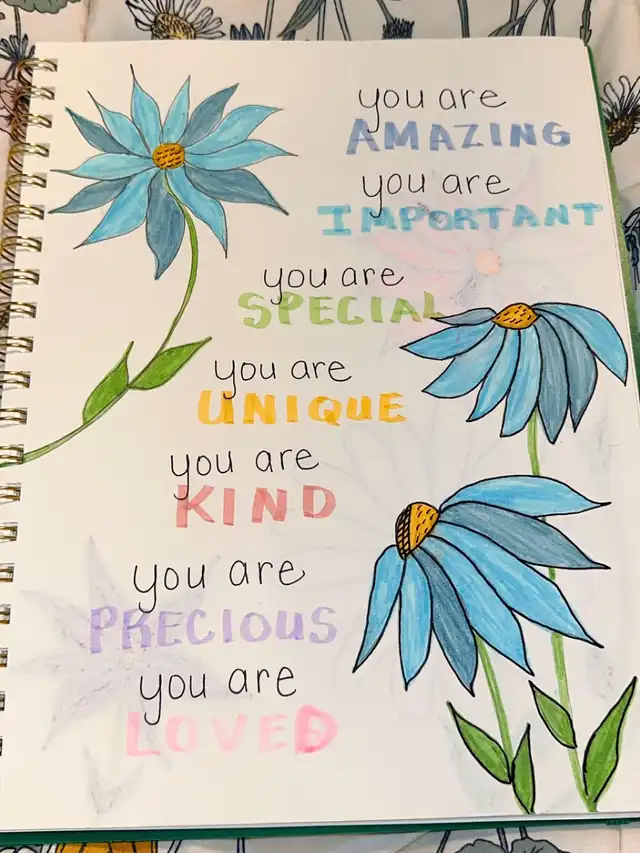 you are
AMAZING
you are
IMPORTANT
you are
SPECIAL
you are
UNIQUE
you are
KIND
you are
PRECIOUS
you are
LOVED